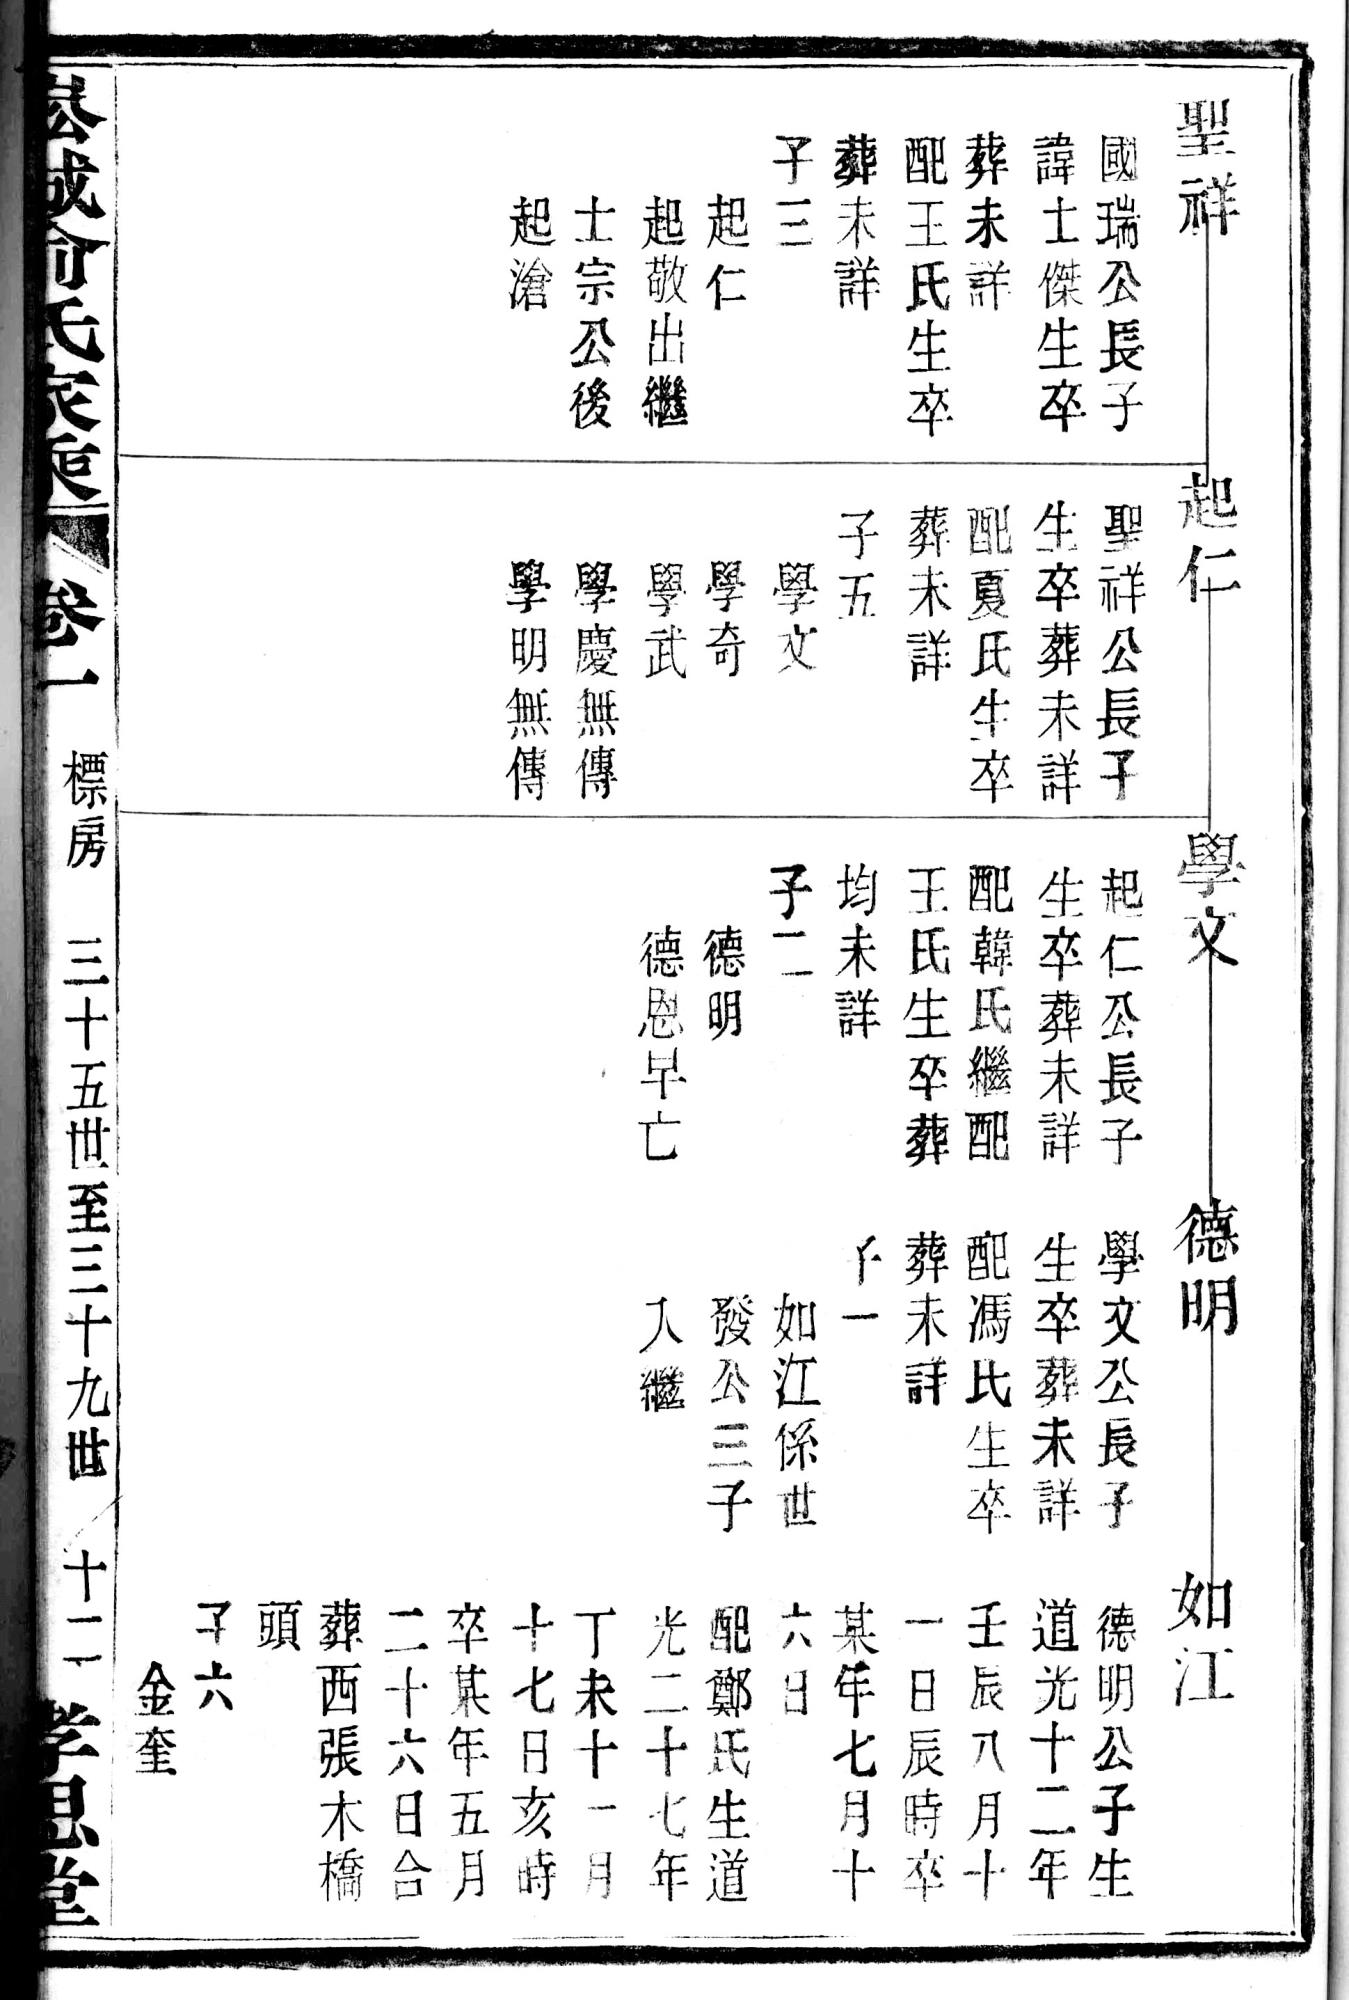 聖祥
國瑞公長子
諱士傑生卒
葬未詳
配王氏生卒
葬未詳
子三
起仁
起敬出繼
士宗公後
起滄
起仁
聖祥公長子
生卒葬未詳
配夏氏生卒
葬未詳
子五
學文
學奇
學武
學慶無傳
學明無傳
學文
起仁公長子
生卒葬未詳
配韓氏繼配
王氏生卒葬
均未詳
子二
德明
德恩早亡
德明
學文公長子
生卒葬未詳
配馮氏生卒
葬未詳
子一
如江係世
發公三子
入繼
如江
德明公子生
道光十二年
壬辰八月十
一日辰時卒
某年七月十
六日
配鄭氏生道
光二十七年
丁未十一月
十七日亥時
卒某年五月
二十六日合
葬西張木橋
頭
子六
金奎
崧城俞氏家乘 卷一 標房 三十五世至三十九世 十二 孝思堂